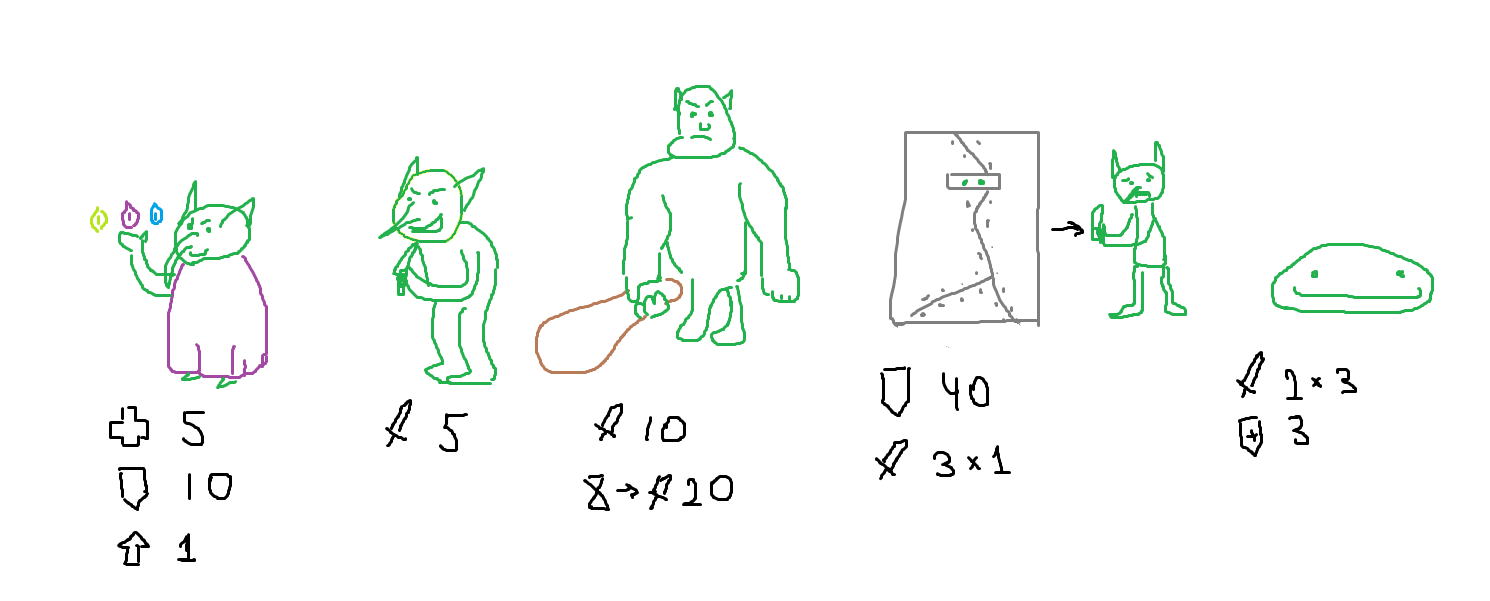 5
10
1
5
10
→ 20
40
3 × 1
2 × 3
3